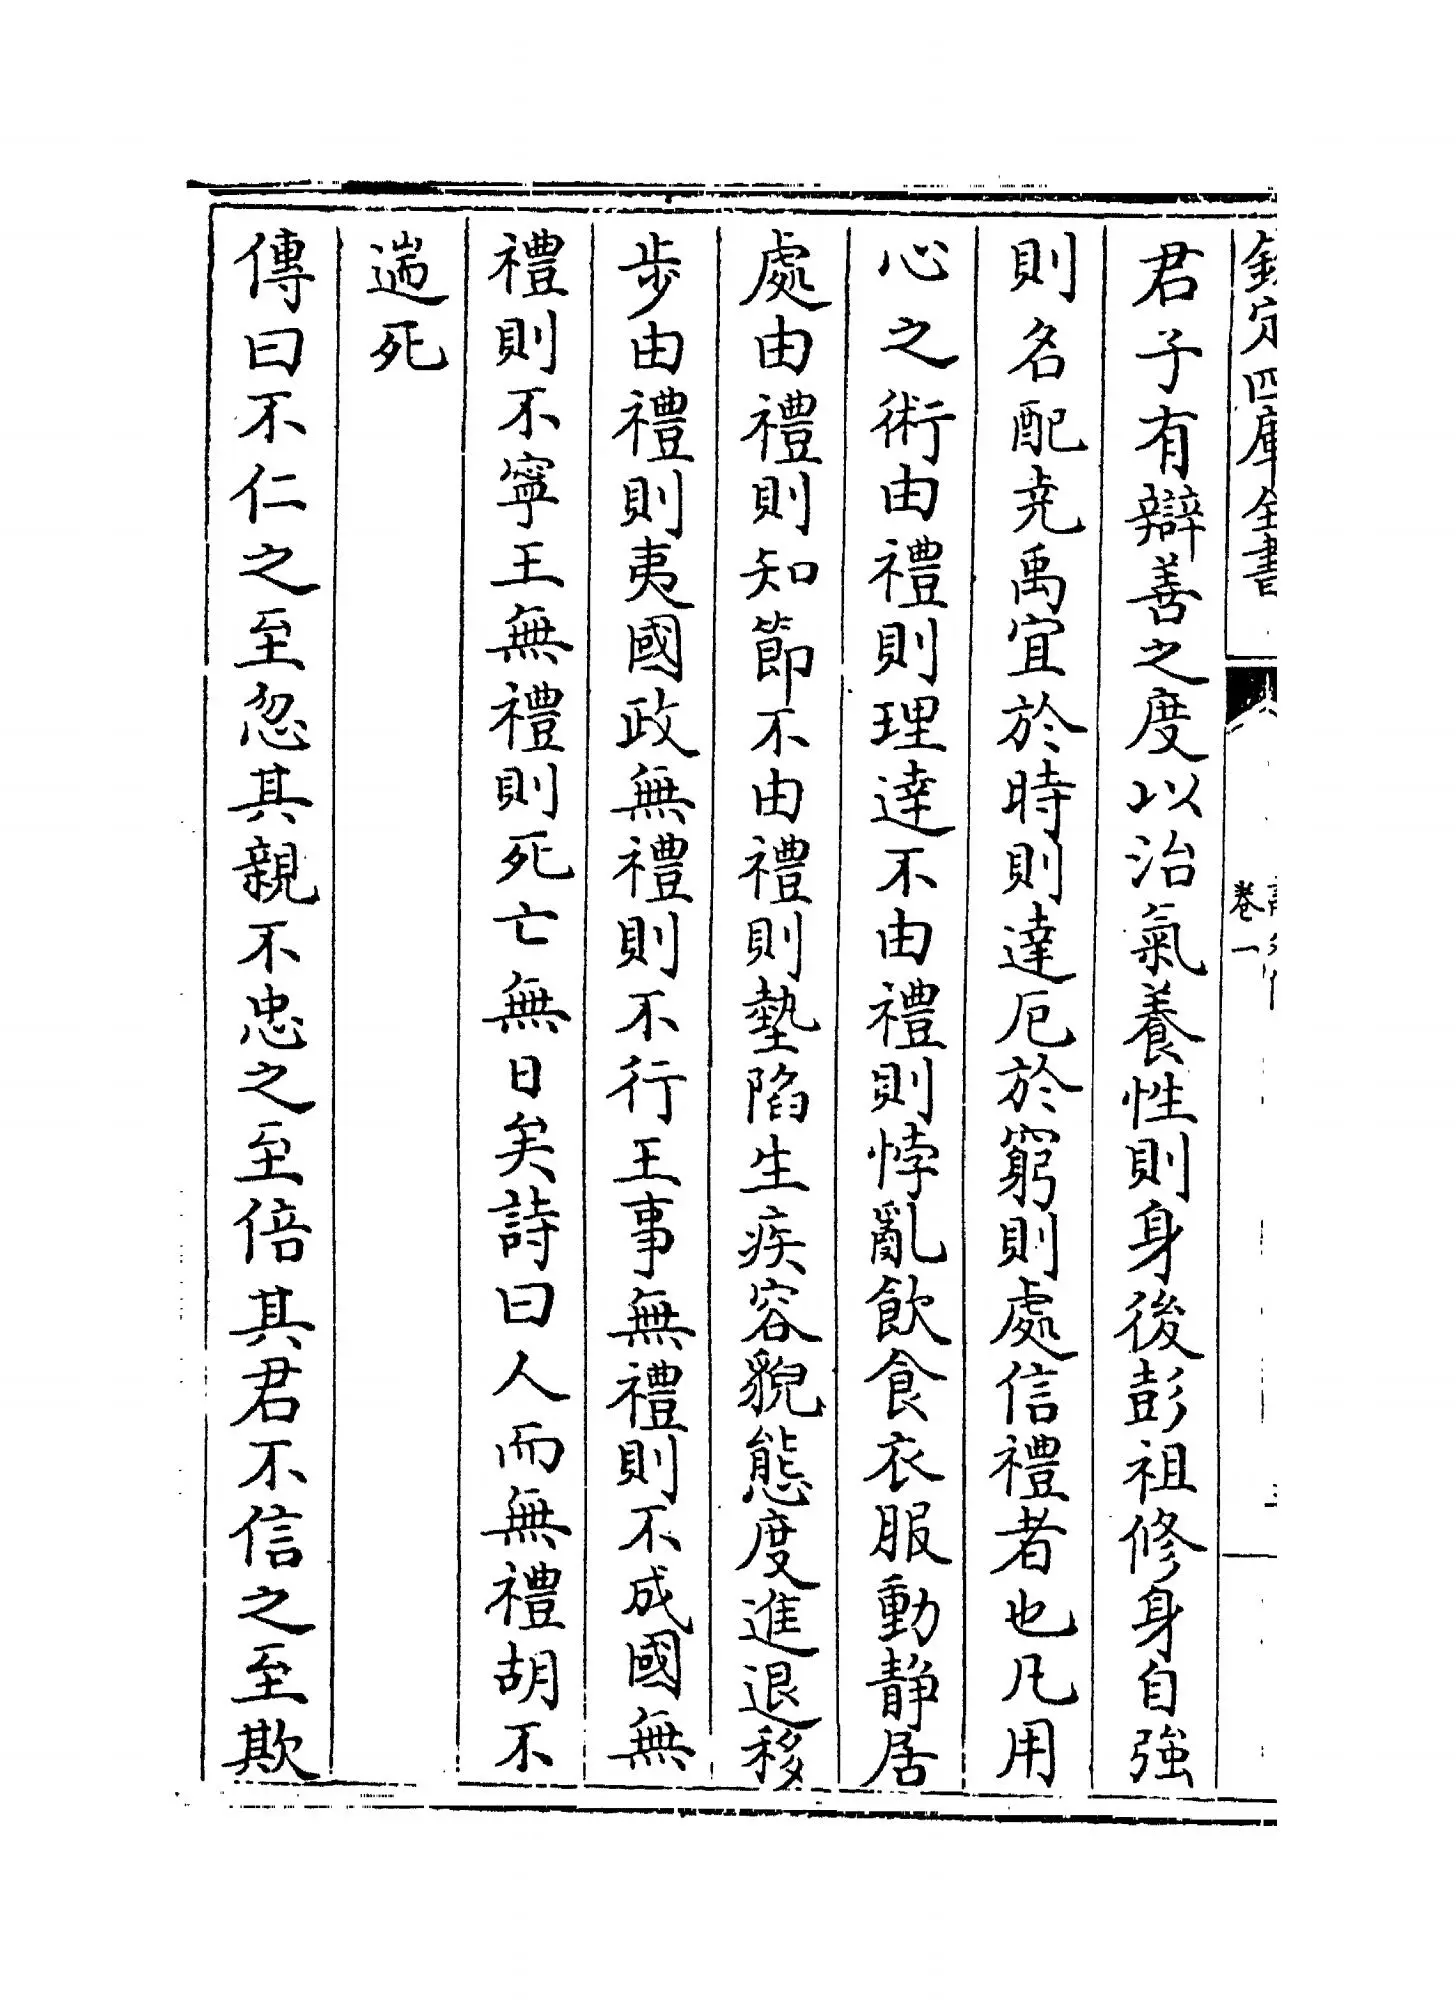 欽定四庫全書
卷一
君子有辯善之度以治氣養性則身後彭祖修身自強
則名配尭禹宜於時則達厄於窮則處信禮者也凡用
心之術由禮則理達不由禮則悖亂飲食衣服動静居
處由禮則知節不由禮則墊陷生疾容貌態度進退移
步由禮則夷國政無禮則不行王事無禮則不成國無
禮則不寧王無禮則死亡無日矣詩曰人而無禮胡不
遄死
傳曰不仁之至忽其親不忠之至倍其君不信之至欺